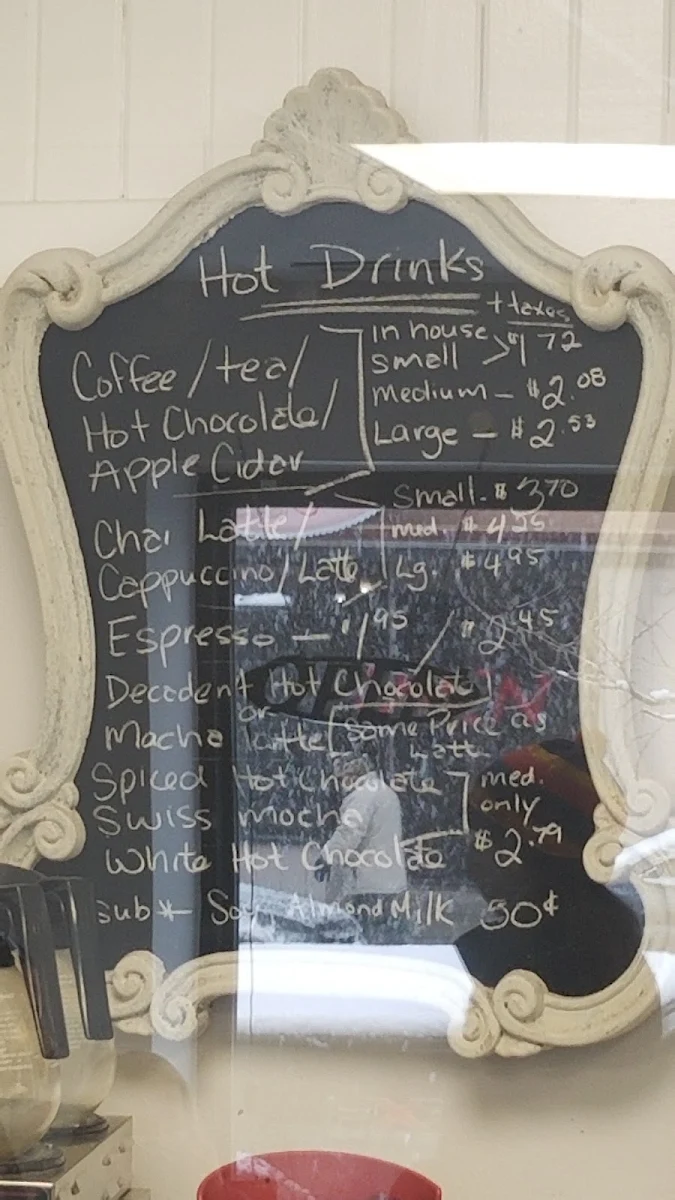 Hot Drinks
+ taxes
in house
small > $1 72
medium - $2.08
Large - $2.53
Coffee/tea/
Hot Chocolate/
Apple Cidar
Small - $370
med. $4
Lg. $495
Chai Latte/
Cappuccino/Latte
Espresso - $195 / $245
Decadent Hot Chocolate
or
Macha latte
Same Price as
Latte
Spiced Hot Chocolate
Swiss mocha
White Hot Chocolate
med.
only
$2.79
sub* Soy, Almond Milk 50¢